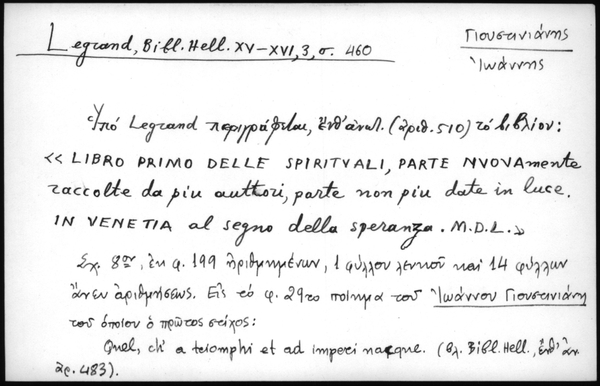 Legrand, Bibl. Hell. XV–XVI, 3, σ. 460
Γιουστινιάνης
Ἰωάννης
Ὑπό Legrand περιγράφεται, ἔνθ' ἀνωτ. (ἀριθ. 510) τό βιβλίον:
<< LIBRO PRIMO DELLE SPIRITVALI, PARTE NVOVAmente
raccolte da piu auttori, parte non piu date in luce.
IN VENETIA al segno della speranza. M.D.L. >>
Σχ. 8ον, ἐκ φ. 199 ἠριθμημένων, 1 φύλλου λευκοῦ καί 14 φύλλων
ἄνευ ἀριθμήσεως. Εἰς τό φ. 29 το ποίημα τοῦ Ἰωάννου Γιουστινιάνη
τοῦ ὁποίου ὁ πρῶτος στίχος:
Quel, ch' a triomphi et ad imperi nacque. (βλ. Bibl. Hell., ἔνθ' ἀν.
ἀρ. 483).